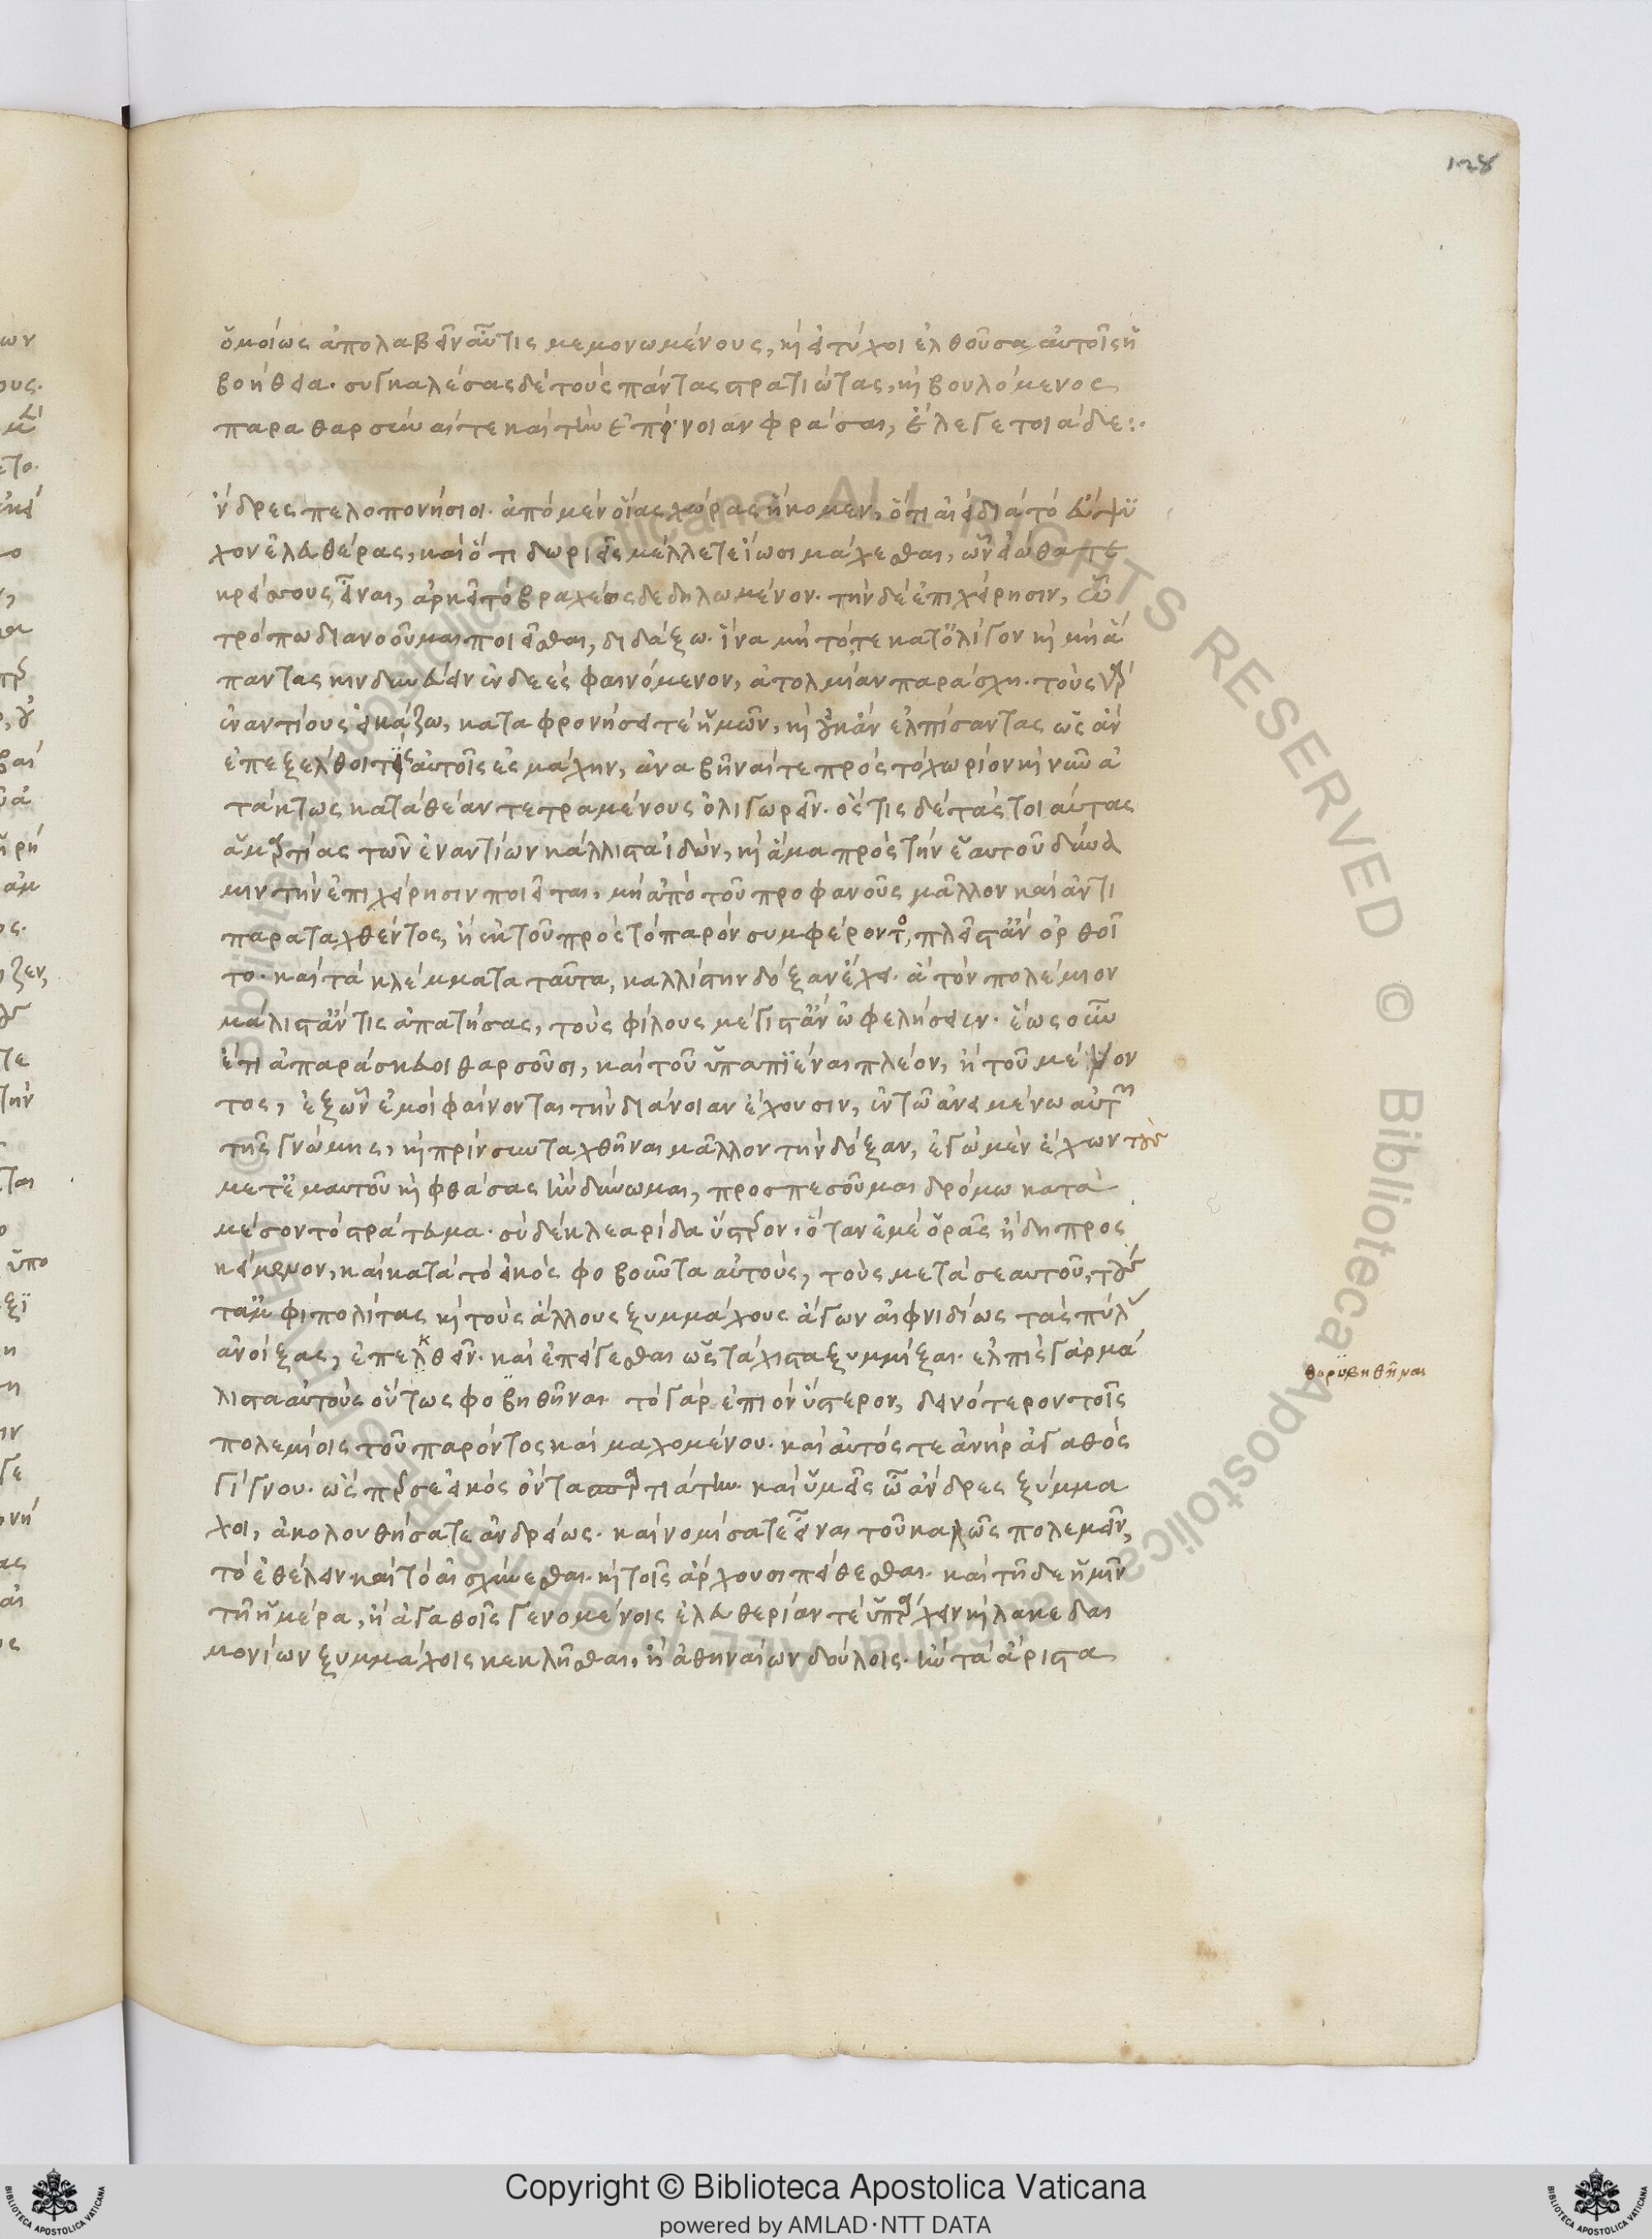 128
ὁμοίως ἀπολαβεῖν αὖτις μεμονωμένους, κ̀ εἰ τύχοι ἐλθοῦσα αὐτοῖς ἡ
βοήθεια. συγκαλέσας δὲ τοὺς πάντας στρατιώτας, κ̀ βουλόμενος
παραθαρσῦναί τε καὶ τὴν ἐπίνοιαν φράσαι, ἔλεγε τοιάδε:.
ἄνδρες πελοπονήσιοι. ἀπὸ μὲν οἵας χώρας ἥκομεν, ὅτι αἰεὶ διὰ τὸ εὔψυ
χον ἐλευθέρας, καὶ ὅτι δωριεῖς μέλλετε ἴωσι μάχεσθαι, ὧν εἰώθατε
κρείσσους εἶναι, ἀρκεῖ τὸ βραχέως δεδηλωμένον. τὴν δὲ ἐπιχείρησιν, ᾧ
τρόπω διανοοῦμαι ποιεῖσθαι, διδάξω. ἵνα μὴ τό τε κατ ὀλίγον κ̀ μὴ ἅ
παντας κινδυνεύειν ἐνδεὲς φαινόμενον, ἀτολμίαν παράσχη. τοὺς γὰρ
ἐναντίους εἰκάζω, καταφρονήσει τὲ ἡμῶν, κ̀ οὐκ ἂν ἐλπίσαντας ὡς ἂν
ἐπεξέλθοι τὶς αὐτοῖς ἐς μάχην, ἀναβῆναί τε πρὸς τὸ χωρίον κ̀ νῦν ἀ
τάκτως κατὰ θέαν τετραμένους ὀλιγωρεῖν. ὅστις δὲ τὰς τοιαύτας
ἁμαρτίας τῶν ἐναντίων κάλλιστα ἰδὼν, κ̀ ἅμα πρὸς τὴν ἑαυτοῦ δύνα
μιν τὴν ἐπιχείρησιν ποιεῖται, μὴ ἀπὸ τοῦ προφανοῦς μᾶλλον καὶ ἀντι
παραταχθέντος, ἢ ἐκ τοῦ πρὸς τὸ παρὸν συμφέροντος, πλεῖστ ἂν ὀρθοῖ
το. καὶ τὰ κλέμματα ταῦτα, καλλίστην δόξαν ἔχει. ἃ τὸν πολέμιον
μάλιστ ἄν τις ἀπατήσας, τοὺς φίλους μέγιστ ἂν ὠφελήσειεν. ἕως οὖν
ἔτι ἀπαράσκευοι θαρσοῦσι, καὶ τοῦ ὑπαπιέναι πλέον, ἢ τοῦ μένον
τος, ἐξ ὧν ἐμοὶ φαίνονται τὴν διάνοιαν ἔχουσιν, ἐν τῶ ἀνειμένω αὐτῶν
τῆς γνώμης, κ̀ πρὶν συνταχθῆναι μᾶλλον τὴν δόξαν, ἐγὼ μὲν ἔχων τοὺς
μετ ἐμαυτοῦ κ̀ φθάσας ἢν δύνωμαι, προσπεσοῦμαι δρόμω κατὰ
μέσον τὸ στράτευμα. σὺ δὲ κλεαρίδα ὕστερον. ὅταν ἐμὲ ὁρᾶς ἤδη προς
κείμενον, καὶ κατὰ τὸ εἰκὸς φοβοῦντα αὐτοὺς, τοὺς μετὰ σεαυτοῦ, τούς
τ ἀμφιπολίτας κ̀ τοὺς ἄλλους ξυμμάχους ἄγων αἰφνιδίως τὰς πύλ
ἀνοίξας, ἐπεκθεῖν. καὶ ἐπείγεσθαι ὡς τάχιστα ξυμμίξαι. ἐλπὶς γὰρ μά
λιστα αὐτοὺς οὕτως φοβηθῆναι. τὸ γὰρ ἐπιὸν ὕστερον, δεινότερον τοῖς
θορυβηθῆναι
πολεμίοις τοῦ παρόντος καὶ μαχομένου. καὶ αὐτός τε ἀνὴρ ἀγαθὸς
γίγνου. ὥσπερ σε εἰκὸς ὄντα σπαρτιάτην. καὶ ὑμεῖς ὦ ἄνδρες ξύμμα
χοι, ἀκολουθήσατε ἀνδρείως. καὶ νομίσατε εἶναι τοῦ καλῶς πολεμεῖν,
τὸ ἐθέλειν καὶ τὸ αἰσχύνεσθαι. κ̀ τοῖς ἄρχουσι πείθεσθαι. καὶ τῆδε ἡμῖν
τῆ ἡμέρα, ἢ ἀγαθοῖς γενομένοις ἐλευθερίαν τὲ ὑπάρχειν κ̀ λακεδαι
μονίων ξυμμάχοις κεκλῆσθαι, ἢ ἀθηναίων δούλοις. ἢν τὰ ἄριστα
Copyright © Biblioteca Apostolica Vaticana
powered by AMLAD·NTT DATA